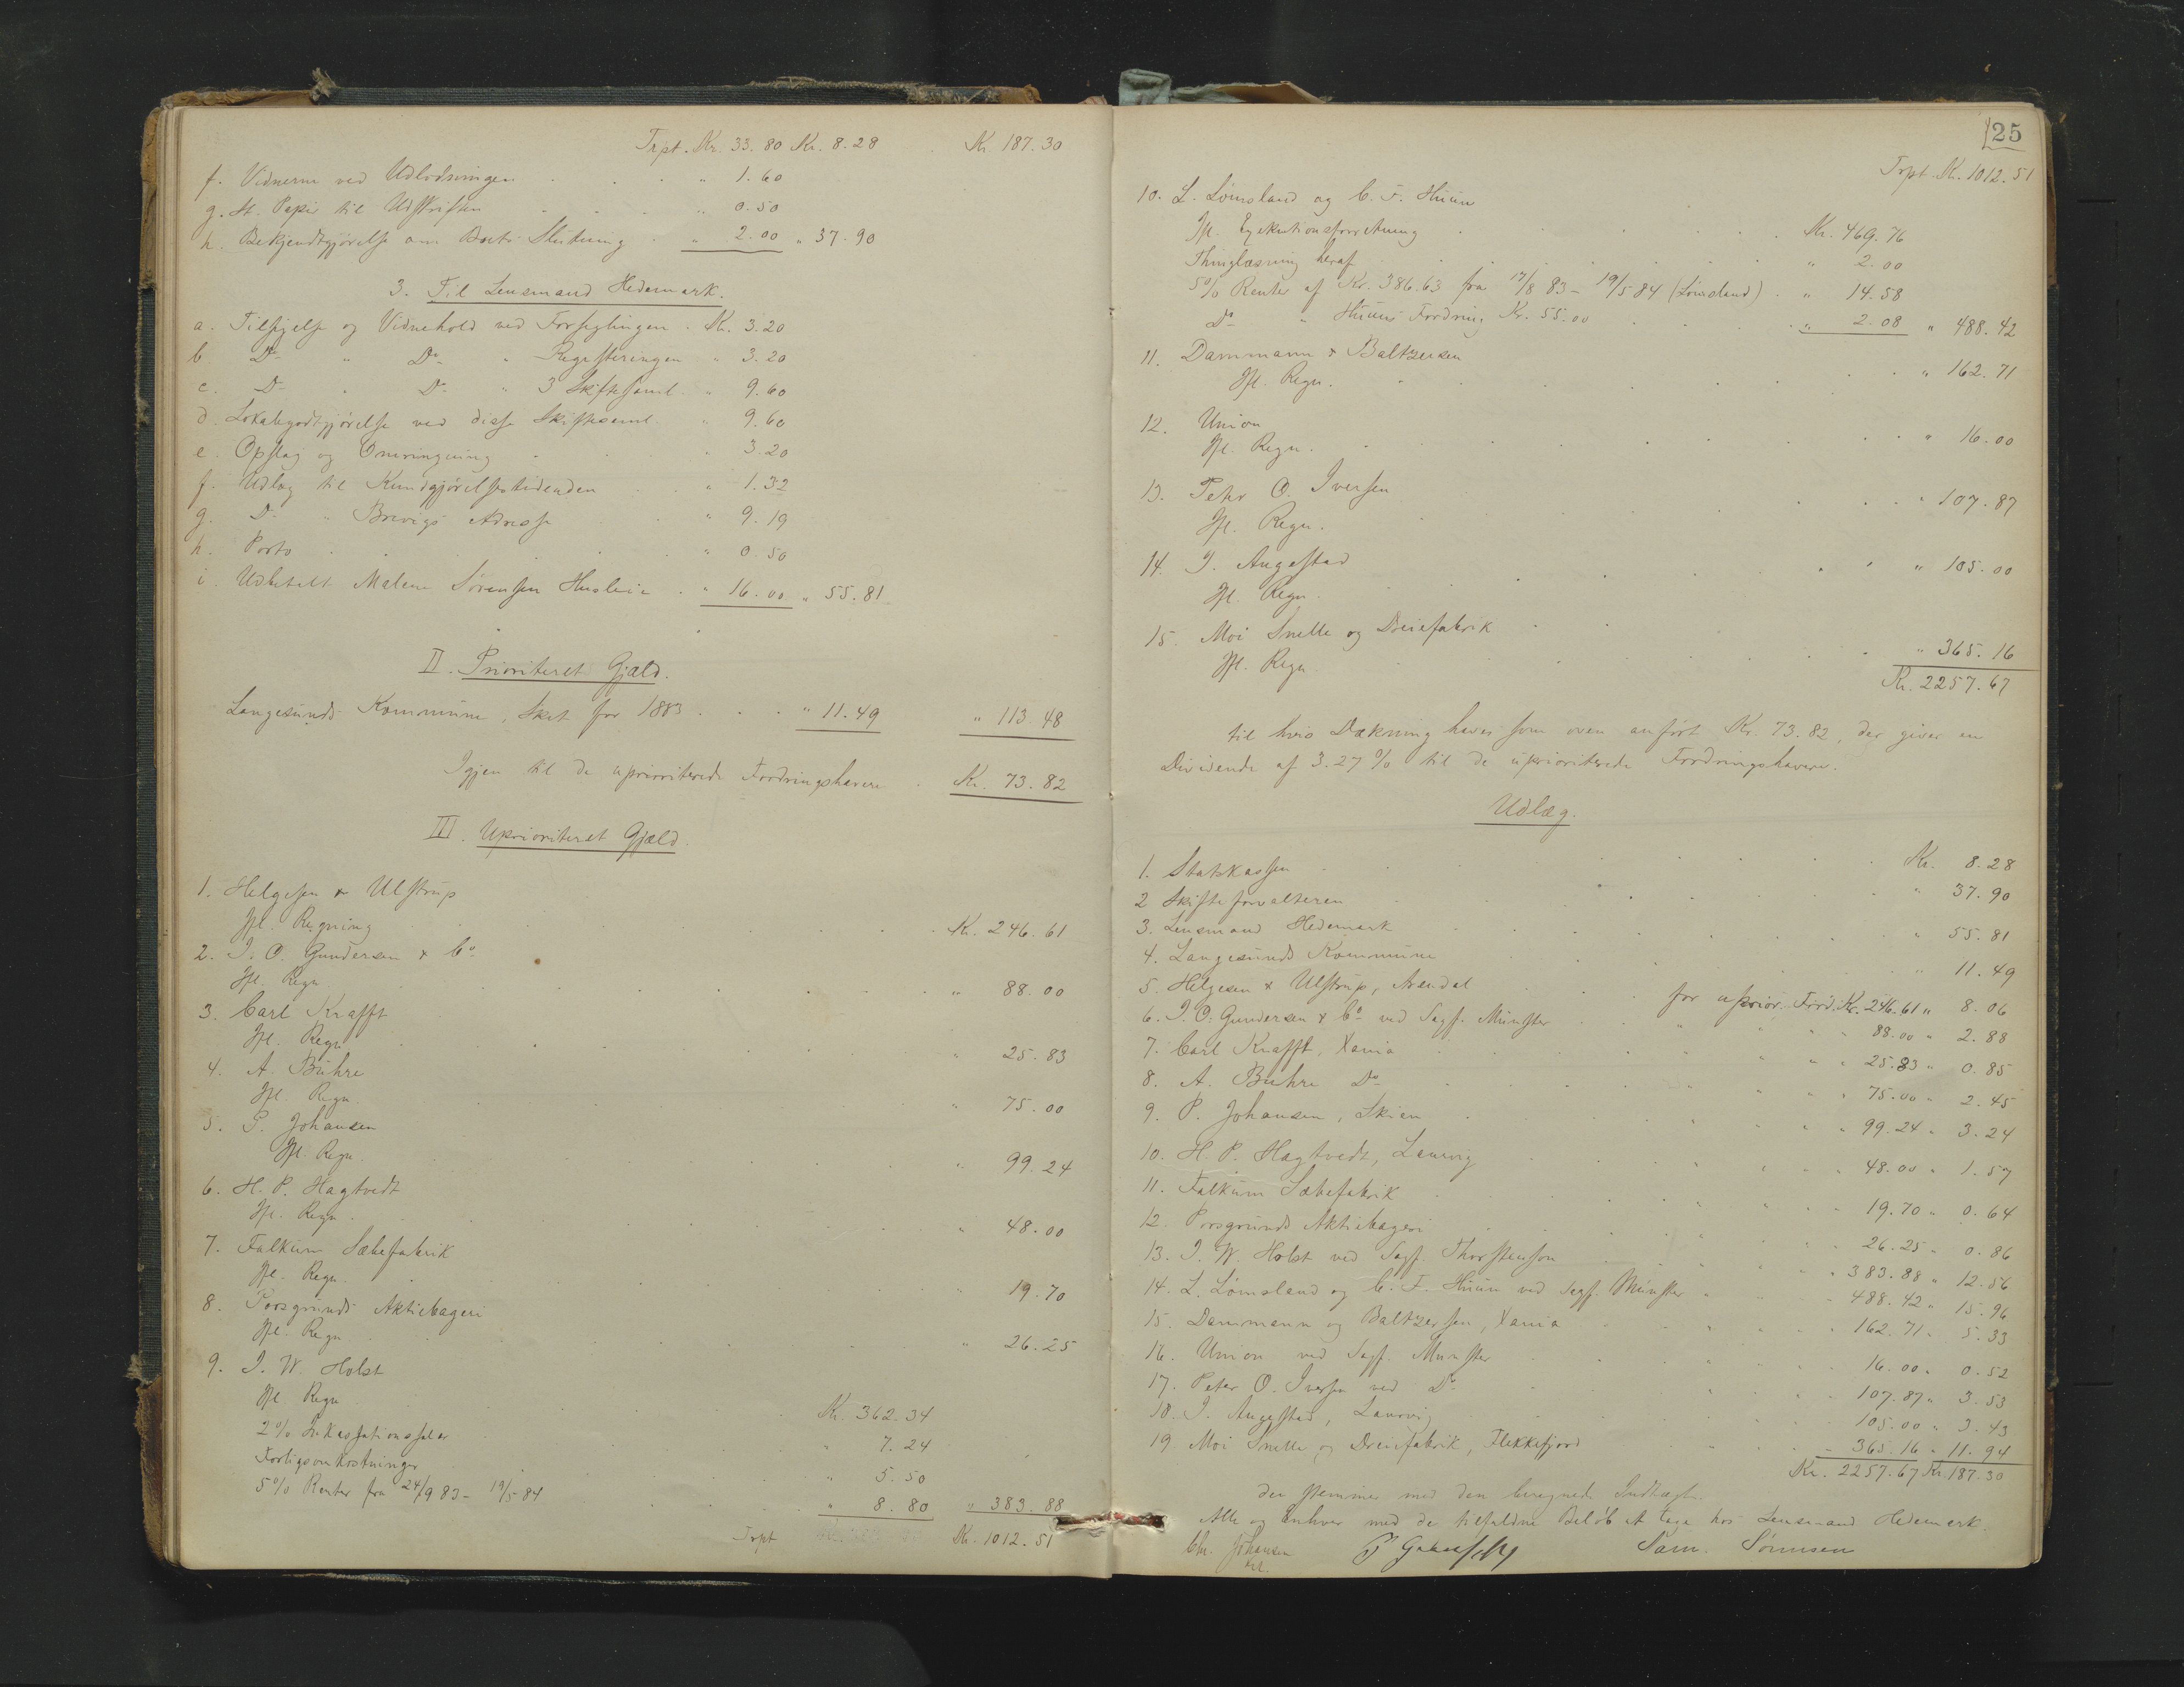 Trpt. Kr. 33.80 Kr. 8.28 Kr. 187.30
f. Vidnerne ved Udlodningen " 1.60
g. St. Papir til Udskriften " 0.50
h. Bekjendtgjörelse om Boets Slutning " 2.00 " 37.90
3. Til Lensmand Hedemark.
a. Tilsigelse og Vidnehold ved Forseglingen . Kr. 3.20
b Do " Do " Registeringen " 3.20
c. Do " Do " 3 Skiftesaml. " 9.60
d. Lokalegodtgjörelse ved disse Skiftesaml. " 9.60
e. Opslag og Omringning " 3.20
f. Udlæg til Kundgjörelsestidenden " 1.32
g. Do " Brevigs Adresse " 9.19
h. Porto " 0.50
i. Udbetalt Malene Sörensen Husleie " 16.00 " 55.81
II. Prioriteret Gjæld.
Langesunds Kommune, Skat for 1883 " 11.49 " 113.48
Igjen til de uprioriterede Fordringshavere Kr. 73.82
III. Uprioriteret Gjæld.
1. Helgesen & Ulstrup
Ifl. Regning Kr. 246.61
2. I. O. Gundersen & Co
Ifl. Regn " 88.00
3. Carl Krafft
Ifl. Regn " 25.83
4. A. Buhre
Ifl. Regn. " 75.00
5. P. Johansen
Ifl. Regn. " 99.24
6. H. P. Hagtvedt
Ifl. Regn. " 48.00
7. Falkum Sæbefabrik
Ifl. Regn. " 19.70
8. Porsgrunds Aktiebageri
Ifl. Regn " 26.25
9. I. W. Holst
Ifl. Regn Kr. 362.34
2% Inkassationssalær " 7.24
Forligsomkostninger " 5.50
5% Renter fra 24/9 83 - 19/5 84 " 8.80 " 383.88
Trpt Kr. 1012.51
25
Trpt. Kr. 1012.51
10. L. Lömsland og C. F. Huun
Ifl. Exekutionsforretning Kr. 469.76
Thinglæsning heraf " 2.00
5% Renter af Kr. 386.63 fra 17/8 83 - 19/5 84 (Lömsland) . " 14.58
Do " Huuns Fordring Kr. 55.00 " 2.08 " 488.42
11. Dammann & Baltzersen
Ifl. Regn. " 162.71
12. Union
Ifl. Regn. " 16.00
13. Peter O. Iversen
Ifl. Regn. " 107.87
14. I. Angestad
Ifl. Regn. " 105.00
15. Moi Snelle og Dreiefabrik
Ifl. Regn " 365.16
Kr. 2257.67
til hvis Dækning haves som oven anfört Kr. 73.82, der giver en
Dividende af 3.27% til de uprioriterede Fordringshavere.
Udlæg.
1. Statskassen Kr. 8.28
2 Skifteforvalteren " 37.90
3. Lensmand Hedemark " 55.81
4. Langesunds Kommune " 11.49
5. Helgesen & Ulstrup, Arendal for uprior. Ford. Kr. 246.61 " 8.06
6. I. O. Gundersen & Co ved Sagf. Münster " " " 88.00 " 2.88
7. Carl Krafft, Xania " " 25.83 " 0.85
8. A. Buhre Do " " " 75.00 " 2.45
9. P. Johansen, Skien " " " 99.24 " 3.24
10. H. P. Hagtvedt, Laurvig " " " 48.00 " 1.57
11. Falkum Sæbefabrik " " " 19.70 " 0.64
12. Porsgrunds Aktiebageri " " " 26.25 " 0.86
13. I. W. Holst ved Sagf. Thorstensen " " " 383.88 " 12.56
14. L. Lömsland og C. F. Huun ved Sagf. Münster " " " 488.42 " 15.96
15. Dammann og Baltzersen, Xania " " " 162.71 " 5.33
16. Union ved Sagf. Munster " " " 16.00 " 0.52
17. Peter O. Iversen ved Do " " " 107.87 " 3.53
18. I. Angestad, Laurvig " " " 105.00 " 3.43
19. Moi Snelle og Dreiefabrik, Flekkefjord " " " 365.16 " 11.94
Kr. 2257.67 Kr. 187.30
der stemmer med den beregnede Indtægt.
Alle og Enhver med de tilfaldne Belöb at tage hos Lensmand Hedemark.
Chr. Johansen Sam. Sörensen